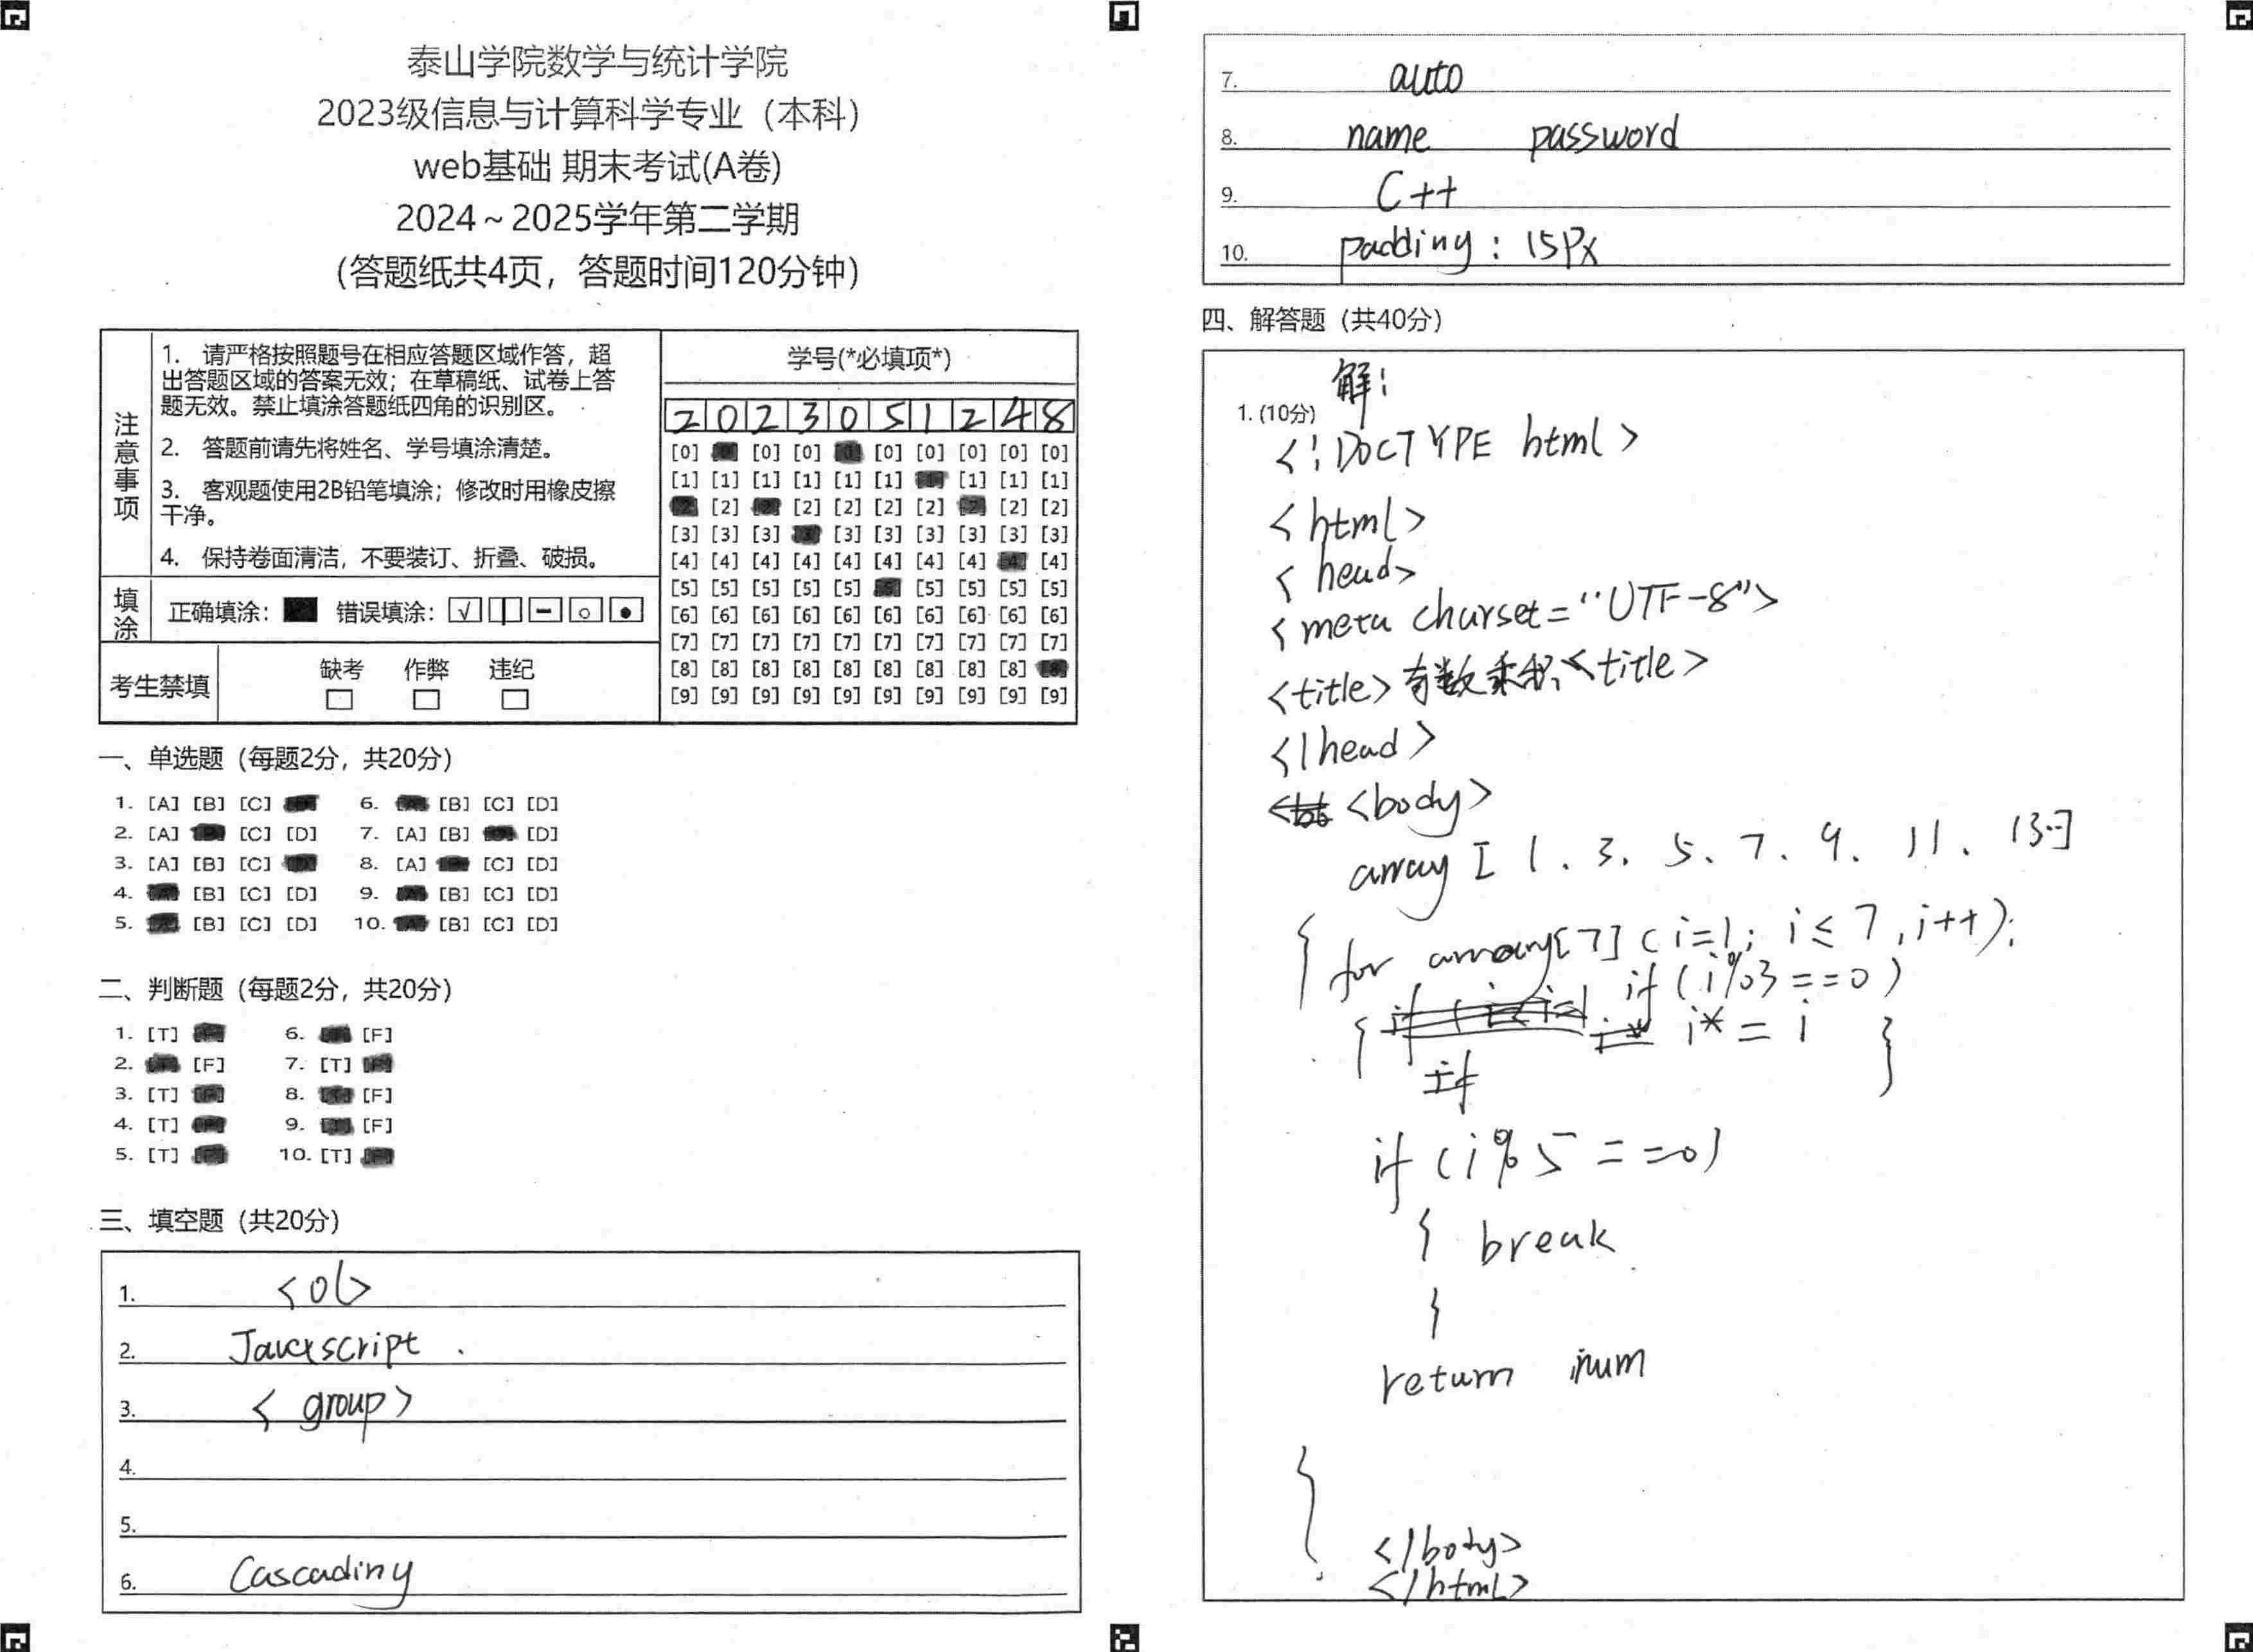 泰山学院数学与统计学院
2023级信息与计算科学专业（本科）
web基础 期末考试(A卷)
2024～2025学年第二学期
（答题纸共4页，答题时间120分钟）
注意事项
1. 请严格按照题号在相应答题区域作答，超
出答题区域的答案无效；在草稿纸、试卷上答
题无效。禁止填涂答题纸四角的识别区。
2. 答题前请先将姓名、学号填涂清楚。
3. 客观题使用2B铅笔填涂；修改时用橡皮擦
干净。
4. 保持卷面清洁，不要装订、折叠、破损。
填涂 正确填涂： 错误填涂：
考生禁填 缺考 作弊 违纪
学号(*必填项*)
2 0 2 3 0 5 1 2 4 8
[0] [0] [0] [0] [0] [0] [0] [0]
[1] [1] [1] [1] [1] [1] [1] [1] [1]
[2] [2] [2] [2] [2] [2] [2]
[3] [3] [3] [3] [3] [3] [3] [3] [3]
[4] [4] [4] [4] [4] [4] [4] [4] [4]
[5] [5] [5] [5] [5] [5] [5] [5] [5]
[6] [6] [6] [6] [6] [6] [6] [6] [6] [6]
[7] [7] [7] [7] [7] [7] [7] [7] [7] [7]
[8] [8] [8] [8] [8] [8] [8] [8] [8]
[9] [9] [9] [9] [9] [9] [9] [9] [9] [9]
一、单选题（每题2分，共20分）
1. [A] [B] [C] 6. [B] [C] [D]
2. [A] [C] [D] 7. [A] [B] [D]
3. [A] [B] [C] 8. [A] [C] [D]
4. [B] [C] [D] 9. [B] [C] [D]
5. [B] [C] [D] 10. [B] [C] [D]
二、判断题（每题2分，共20分）
1. [T] 6. [F]
2. [F] 7. [T]
3. [T] 8. [F]
4. [T] 9. [F]
5. [T] 10. [T]
三、填空题（共20分）
1. <ol>
2. Javascript .
3. < group>
4.
5.
6. Cascadiny
7. auto
8. name password
9. C++
10. padding : 15px
四、解答题（共40分）
解：
1. (10分)
<!DOCTYPE html>
<html>
< head>
< meta charset="UTF-8">
<title>奇数乘积<title>
</head>
<body>
array [ 1、3、5、7、9、11、13..]
{ for array[7] ( i=1; i≤7, i++);
if (i%3 == 0)
{ i* = i }
if
if (i%5 == 0)
{ break
}
return num
{
</body>
</html>